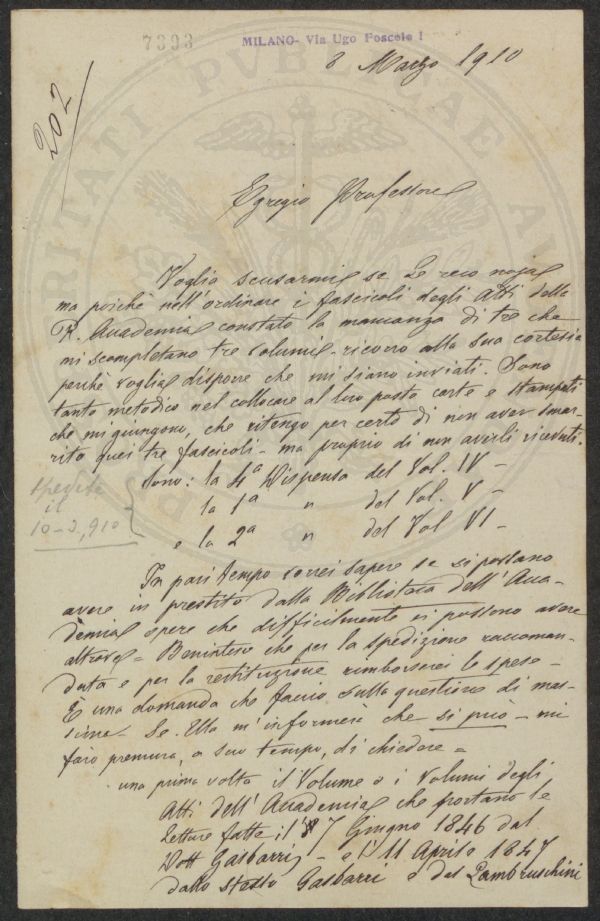 7393
MILANO- Via Ugo Foscolo 1
8 Marzo 1910
202
Egregio Professore
Voglia scusarmi se Le reco noja
ma poichè nell'ordinare i fascicoli degli Atti della
R. Accademia constato la mancanza di tre che
mi scompletano tre volumi - ricorro alla sua cortesia
perchè voglia disporre che mi siano inviati. Sono
tanto metodico nel collocare al loro posto carte e stampati
che mi giungono, che ritengo per certo di non aver smar-
rito quei tre fascicoli - ma proprio di non averli ricevuti.
Sono: la 4ª Dispensa del Vol. IV -
la 1ª " del Vol. V -
e la 2ª " del Vol VI -
spedite
il
10-3,910
In pari tempo vorrei sapere se si possano
avere in prestito dalla Biblioteca dell'Acca-
demia opere che difficilmente si possono avere
altrove = Benintese che per la spedizione raccoman-
data e per la restituzione rimborserei le spese -
È una domanda che faccio sulla questione di mas-
sima. Se Ella m'informerà che si può - mi
farò premura, a suo tempo, di chiedere =
una prima volta il Volume o i Volumi degli
Atti dell'Accademia che portano le
Letture fatte il 7 Giugno 1846 dal
Dott Gasbarri - e l'11 Aprile 1847
dallo stesso Gasbarri e dal Lambruschini